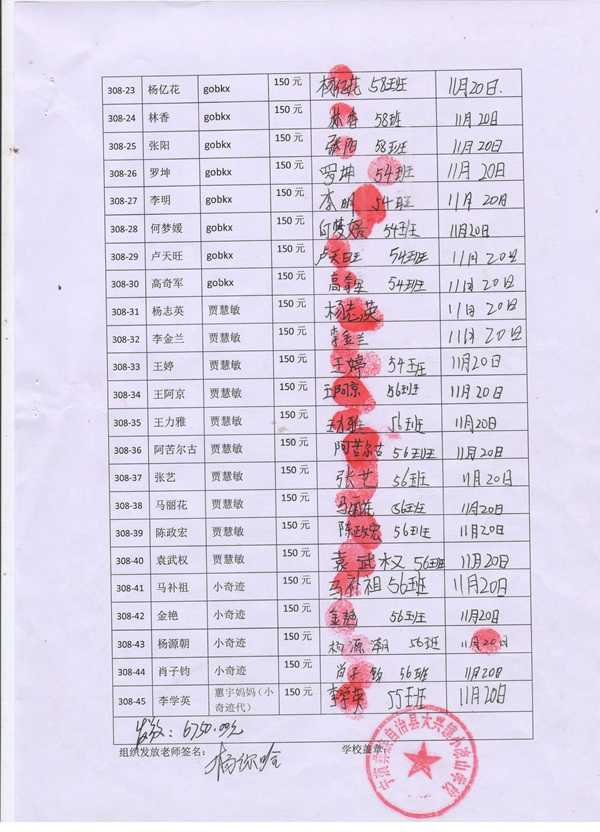 308-23 杨亿花 gobkx 150 元 杨亿花 58班 11月20日.
308-24 林香 gobkx 150 元 林香 58班 11月20日
308-25 张阳 gobkx 150 元 张阳 58班 11月20日
308-26 罗坤 gobkx 150 元 罗坤 54班 11月20日
308-27 李明 gobkx 150 元 李明 54班 11月20日
308-28 何梦媛 gobkx 150 元 何梦媛 54班 11月20日
308-29 卢天旺 gobkx 150 元 卢天旺 54班 11月20日
308-30 高奇军 gobkx 150 元 高奇军 54班 11月20日
308-31 杨志英 贾慧敏 150 元 杨志英 11月20日
308-32 李金兰 贾慧敏 150 元 李金兰 11月20日
308-33 王婷 贾慧敏 150 元 王婷 54班 11月20日
308-34 王阿京 贾慧敏 150 元 王阿京 56班 11月20日
308-35 王力雅 贾慧敏 150 元 王力雅 56班 11月20日
308-36 阿苦尔古 贾慧敏 150 元 阿苦尔古 56班 11月20日
308-37 张艺 贾慧敏 150 元 张艺 56班 11月20日
308-38 马丽花 贾慧敏 150 元 马丽花 56班 11月20日
308-39 陈政宏 贾慧敏 150 元 陈政宏 56班 11月20日
308-40 袁武权 贾慧敏 150 元 袁武权 56班 11月20日
308-41 马补祖 小奇迹 150 元 马补祖 56班 11月20日
308-42 金艳 小奇迹 150 元 金艳 56班 11月20日
308-43 杨源朝 小奇迹 150 元 杨源潮 56班 11月20日
308-44 肖子钧 小奇迹 150 元 肖子钧 56班 11月20日
308-45 李学英 蕙宇妈妈（小奇迹代） 150 元 李学英 55班 11月20日
发放：6750.00元
组织发放老师签名： 学校盖章：
自治县大兴镇小凉山学校